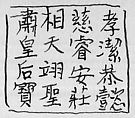 孝潔恭懿
慈睿安莊
相天翊聖
肅皇后寶